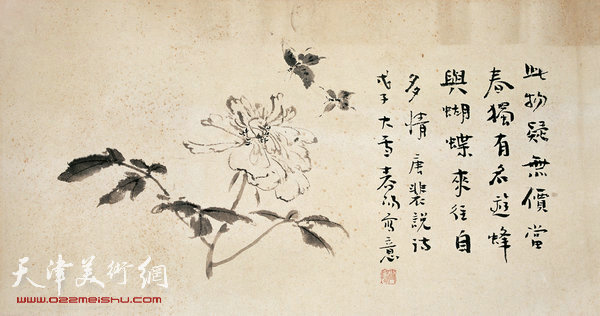 此物疑無價當
春獨有名遊蜂
與蝴蝶來往自
多情唐裴說詩
戊子大雪春佑寫意
天津美術網
www.022meishu.com